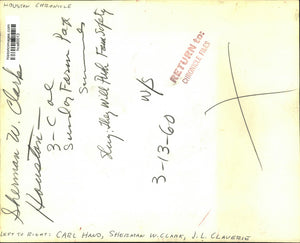 HOUSTON CHRONICLE
Sherman W. Clark
Houston
3-Col
Sunday Forum Page
Slug: They Will Push Farm Safety
W/S
3-13-60
RETURN to:
CHRONICLE FILES
LEFT TO RIGHT: CARL HAND, SHERMAN W. CLARK, J. L. CLAVERIE